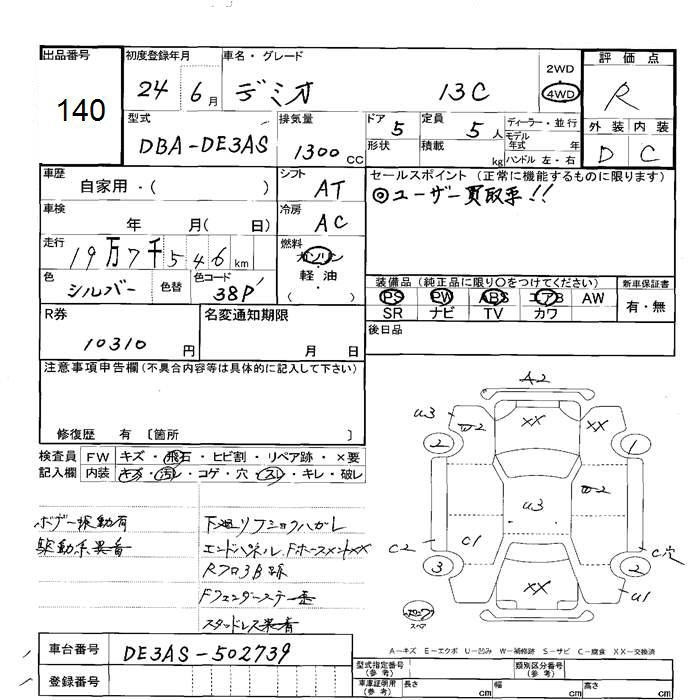 出品番号 初度登録年月 車名・グレード 評価点
140 24 6月 デミオ 13C 2WD 4WD R
型式 排気量 ドア 定員 ディーラー・並行 外装 内装
DBA-DE3AS 1300cc 5 5人 モデル年式 年 D C
形状 積載 kg ハンドル 左・右
車歴 シフト セールスポイント (正常に機能するものに限ります)
自家用・( ) AT ◎ユーザー買取車!!
車検 冷房
年 月( 日) AC
走行 燃料
19万7千546km ガソリン・軽油( )
色 色替 色コード 装備品(純正品に限り〇をつけてください) 新車保証書
シルバー 38P PS PW ABS エアB AW 有・無
R券 名変通知期限 SR ナビ TV カワ
10310円 月 日 後日品
注意事項申告欄(不具合内容等は具体的に記入して下さい)
修復歴 有 〔箇所 〕
検査員 FW キズ・飛石・ヒビ割・リペア跡・×要
記入欄 内装 キズ・汚レ・コゲ・穴・スレ・キレ・破レ
ボデー振動有 下廻リフショクハガレ
駆動系異音 エンドパネル.FホースメントXX
Fフェンダーステー
スタッドレス
A2
u3 W2 XX XX
2 1
u3 W2
C2 C1 C穴
3 XX 2
u1
スペア
A-キズ E-エクボ U-凹み W-補修跡 S-サビ C-腐食 XX-交換済
車台番号 DE3AS-502739 型式指定番号(参考) 類別区分番号(参考)
登録番号 車庫証明用(参考) 長さ cm 幅 cm 高さ cm